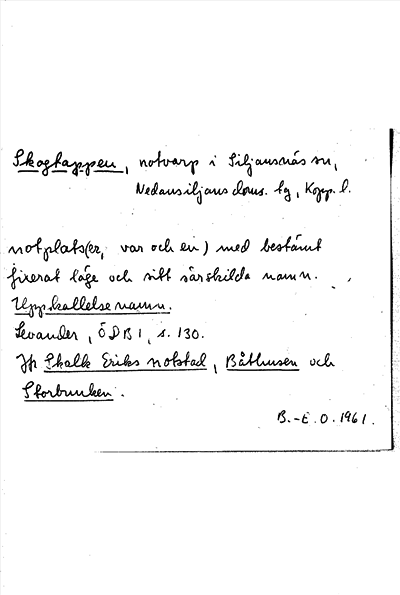 Skogtappen, notvarp i Siljansnäs sn,
Nedansiljans doms. tg, Kopp. l.
notplats(er, var och en) med bestämt
fixerat läge och sitt särskilda namn.
Uppkallelsenamn.
Levander, ÖDB I, s. 130.
Jfr Skalk Eriks notstad, Båthusen och
Storbunken.
B.-E. O. 1961.